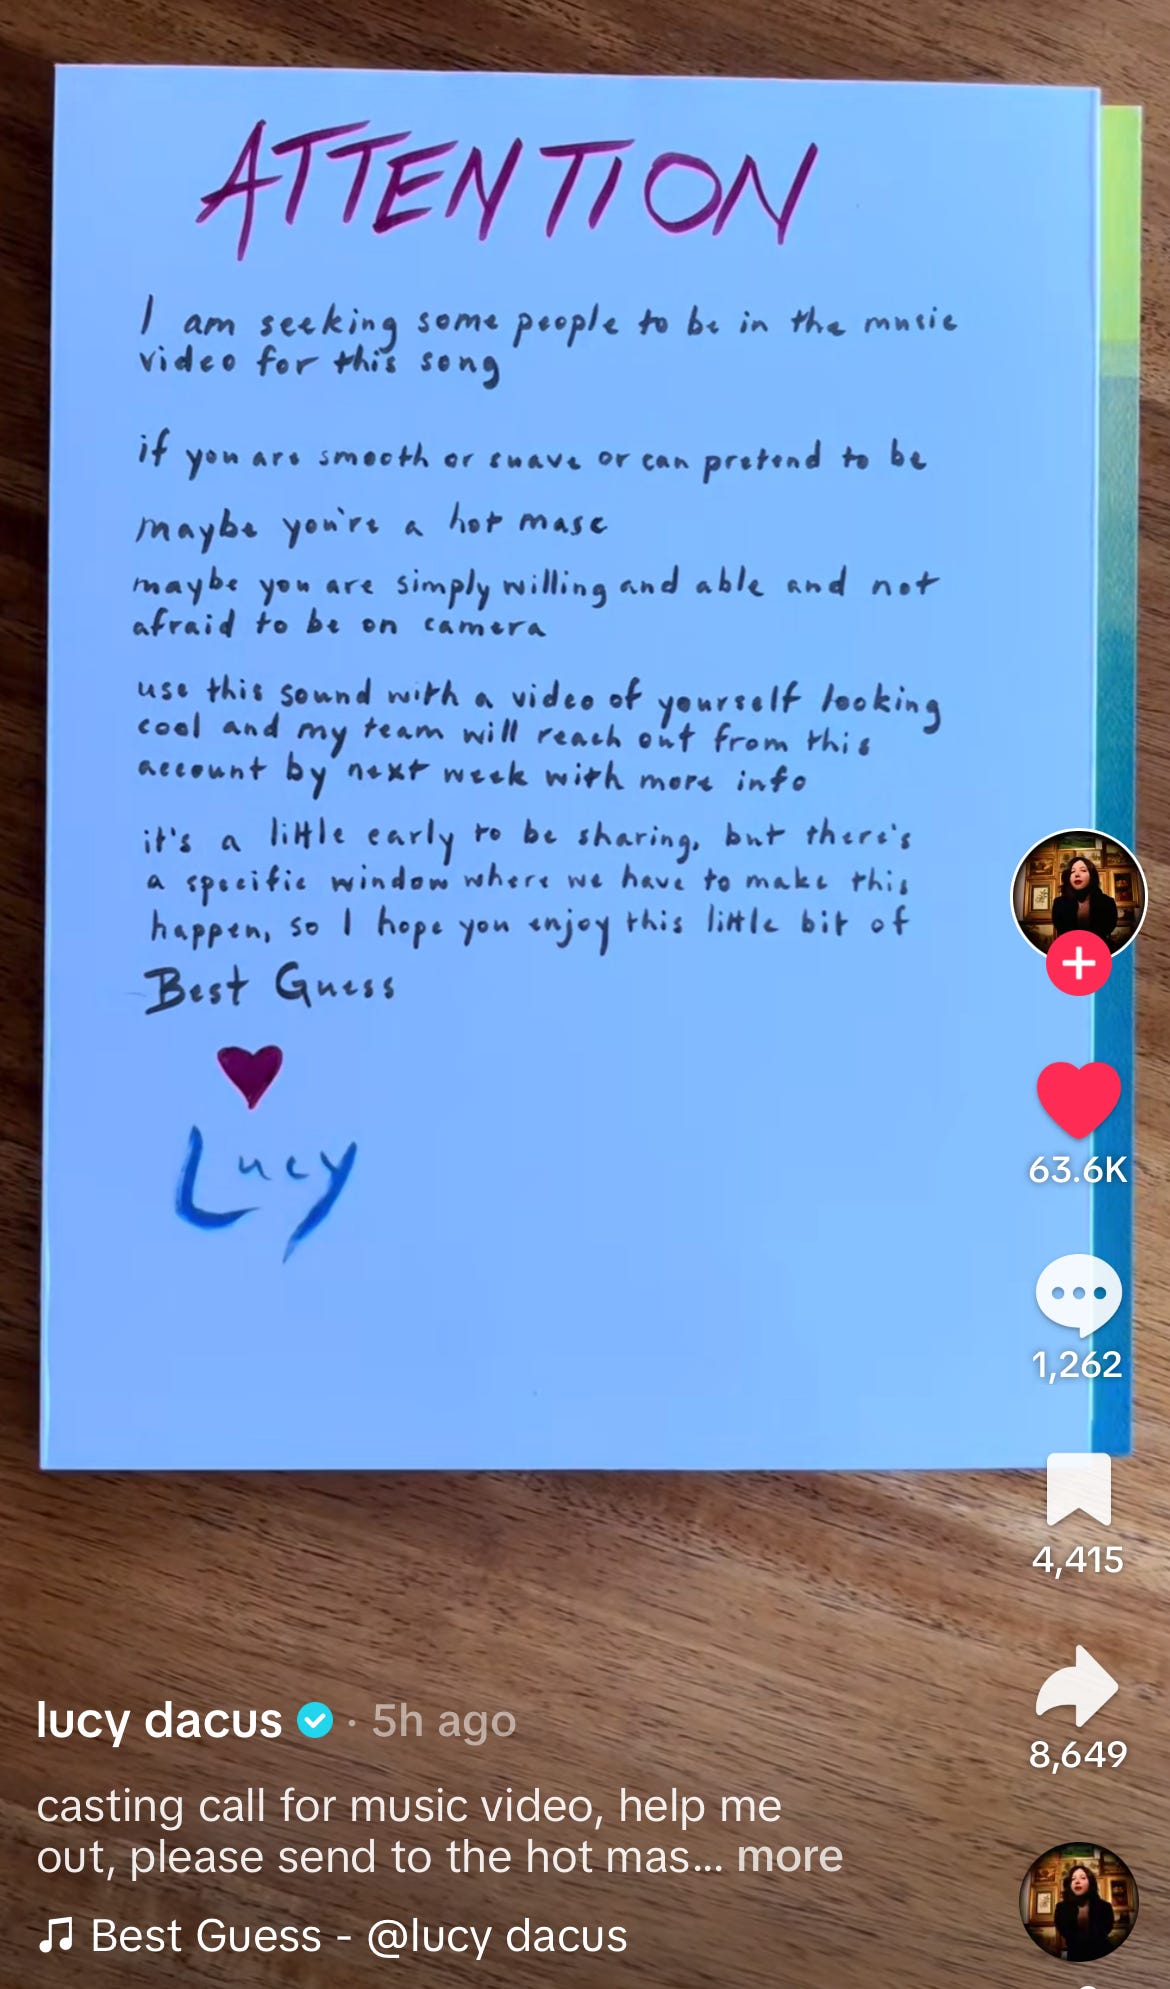 ATTENTION
I am seeking some people to be in the music
video for this song
if you are smooth or suave or can pretend to be
maybe you're a hot masc
maybe you are simply willing and able and not
afraid to be on camera
use this sound with a video of yourself looking
cool and my team will reach out from this
account by next week with more info
it's a little early to be sharing, but there's
a specific window where we have to make this
happen, so I hope you enjoy this little bit of
Best Guess
Lucy
63.6K
1,262
4,415
8,649
lucy dacus · 5h ago
casting call for music video, help me
out, please send to the hot mas... more
Best Guess - @lucy dacus